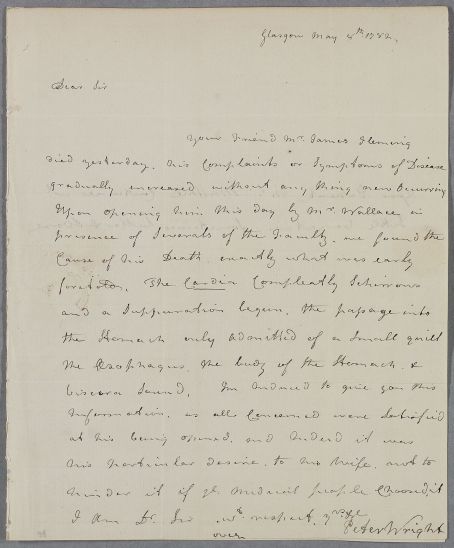 Glasgow May 8th. 1782.
Dear Sir
Your Friend Mr. James Fleming
died yesterday. his Complaints or Symptoms of Disease
gradually increased without any thing new Occurring
Upon opening him this day by Mr Wallace in
presence of Severals of the Faculty, we found the
Cause of his Death exactly what was early
foretold. The Cardia Compleatly Schirrous
and a Suppuration begun. the passage into
the Stomach only admitted of a Small quill
the Esophagus. the body of the Stomach. &
Viscera Sound. I'm induced to give you this
Information. as all Concerned were Satisfied
at his being opened. and Indeed it was
his particular desire. to his Wife. not to
hinder it if ye. Medical people Choosed it
I Am Dr. Sir wt. respect. yrs &c
Peter Wright
over